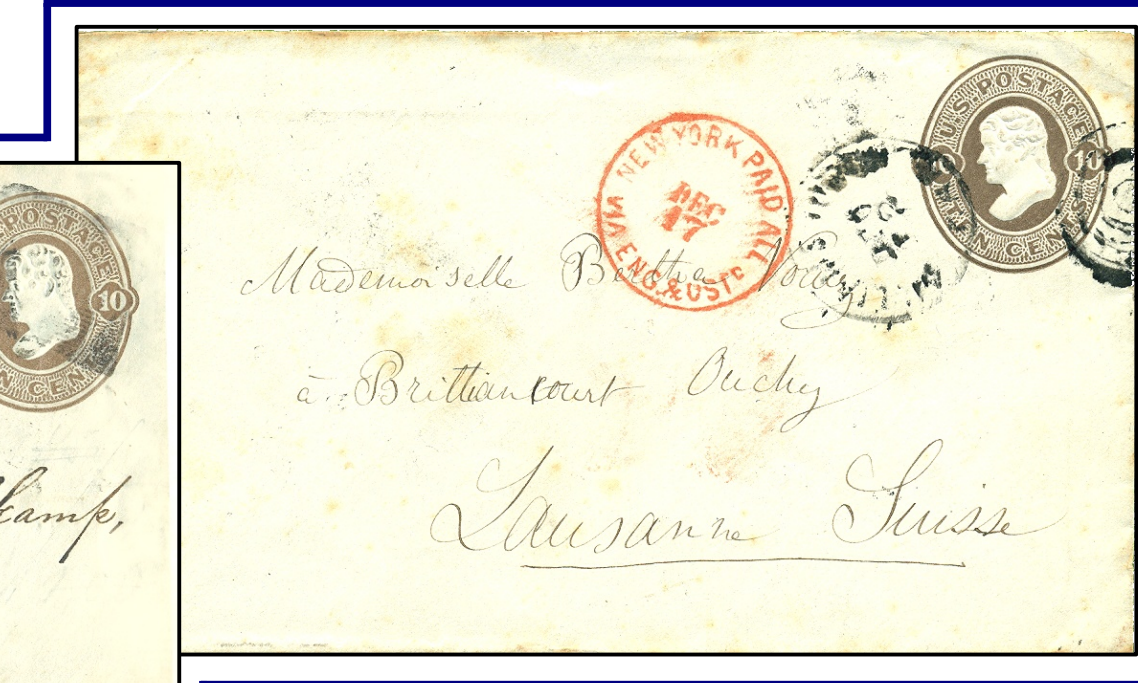 U.S. POSTAGE
10
TEN CENTS
NEW YORK PAID ALL
DEC
17
VIA ENG. & OSTD
Mademoiselle Bertha
à Brittiancourt Ouchy
Lausanne Suisse
POSTAGE
10
N CEN
Kamp,